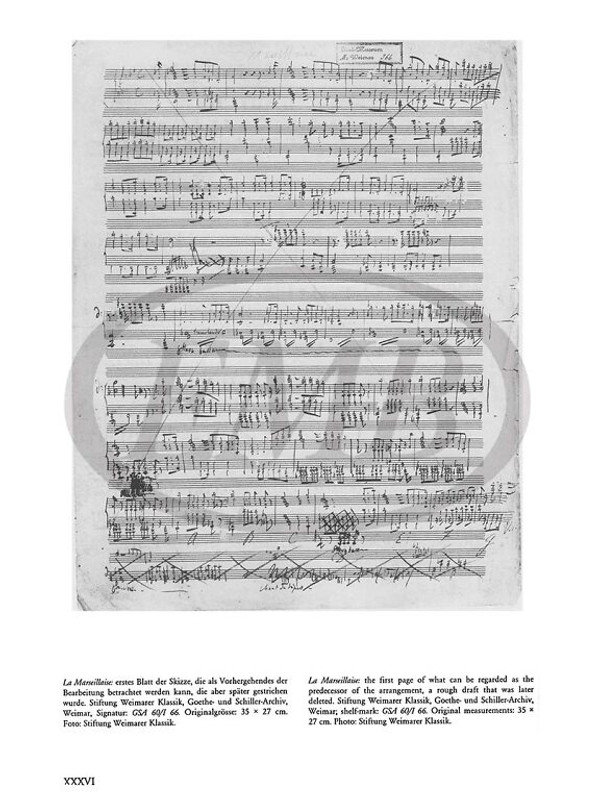 EMB
La Marseillaise: erstes Blatt der Skizze, die als Vorhergehendes der
Bearbeitung betrachtet werden kann, die aber später gestrichen
wurde. Stiftung Weimarer Klassik, Goethe- und Schiller-Archiv,
Weimar, Signatur: GSA 60/I 66. Originalgrösse: 35 × 27 cm.
Foto: Stiftung Weimarer Klassik.
La Marseillaise: the first page of what can be regarded as the
predecessor of the arrangement, a rough draft that was later
deleted. Stiftung Weimarer Klassik, Goethe- und Schiller-Archiv,
Weimar; shelf-mark: GSA 60/I 66. Original measurements: 35 ×
27 cm. Photo: Stiftung Weimarer Klassik.
XXXVI